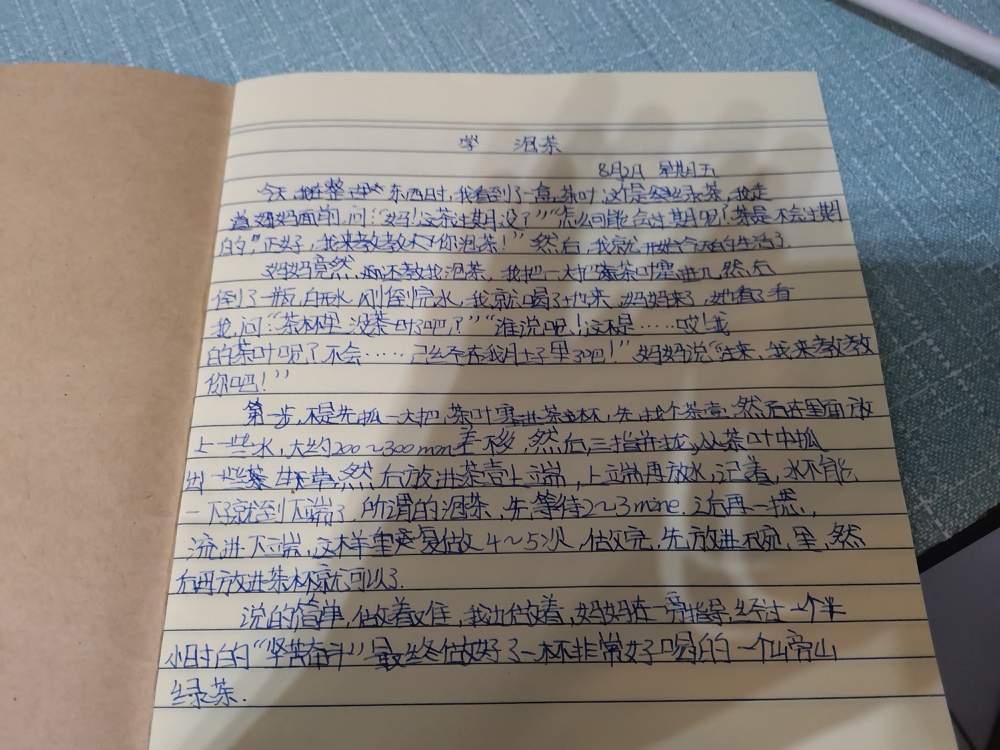 学 泡茶
8月2日 星期五
今天,我在整理 东西时,我看到了一盒茶叶,这是 绿茶,我走
道妈妈面前,问:“妈!这茶过期没?”“怎么可能会过期呢?茶是不会过期
的。”“正好,我来教教你泡茶!”然后,我就开始 的生活了.
妈妈竟然 不教我泡茶,我把一大把 茶叶塞进 ,然后
倒了一瓶白开水,刚倒完水,我就喝了起来,妈妈来了,她看了看
我,问:“茶杯里没茶叶了吧?”“谁说呢!这不是……哎!我
的茶叶呢?不会……已经在我肚子里了吧!”妈妈说“过来,我来教教
你吧!”
第一步,不是先抓一大把,茶叶塞进茶杯,先,找个茶壶,然后在里面放
上一些水,大约200~300 差不多,然后,三指并拢,从茶叶中抓
出一些茶 ,然后放进茶壶上端,上端再放水,记着,水不能
一下就到下端了,所谓的泡茶,先等待2~3mine.之后再一 ,
流进下端,这样重复做4~5次,做完,先放进 碗,里,然
后再放进茶杯就可以了.
说的简单,做着难,我边做着,妈妈在一旁指导,经过一个半
小时的“坚苦奋斗”最终做好了一杯非常好喝的一 山
绿茶.